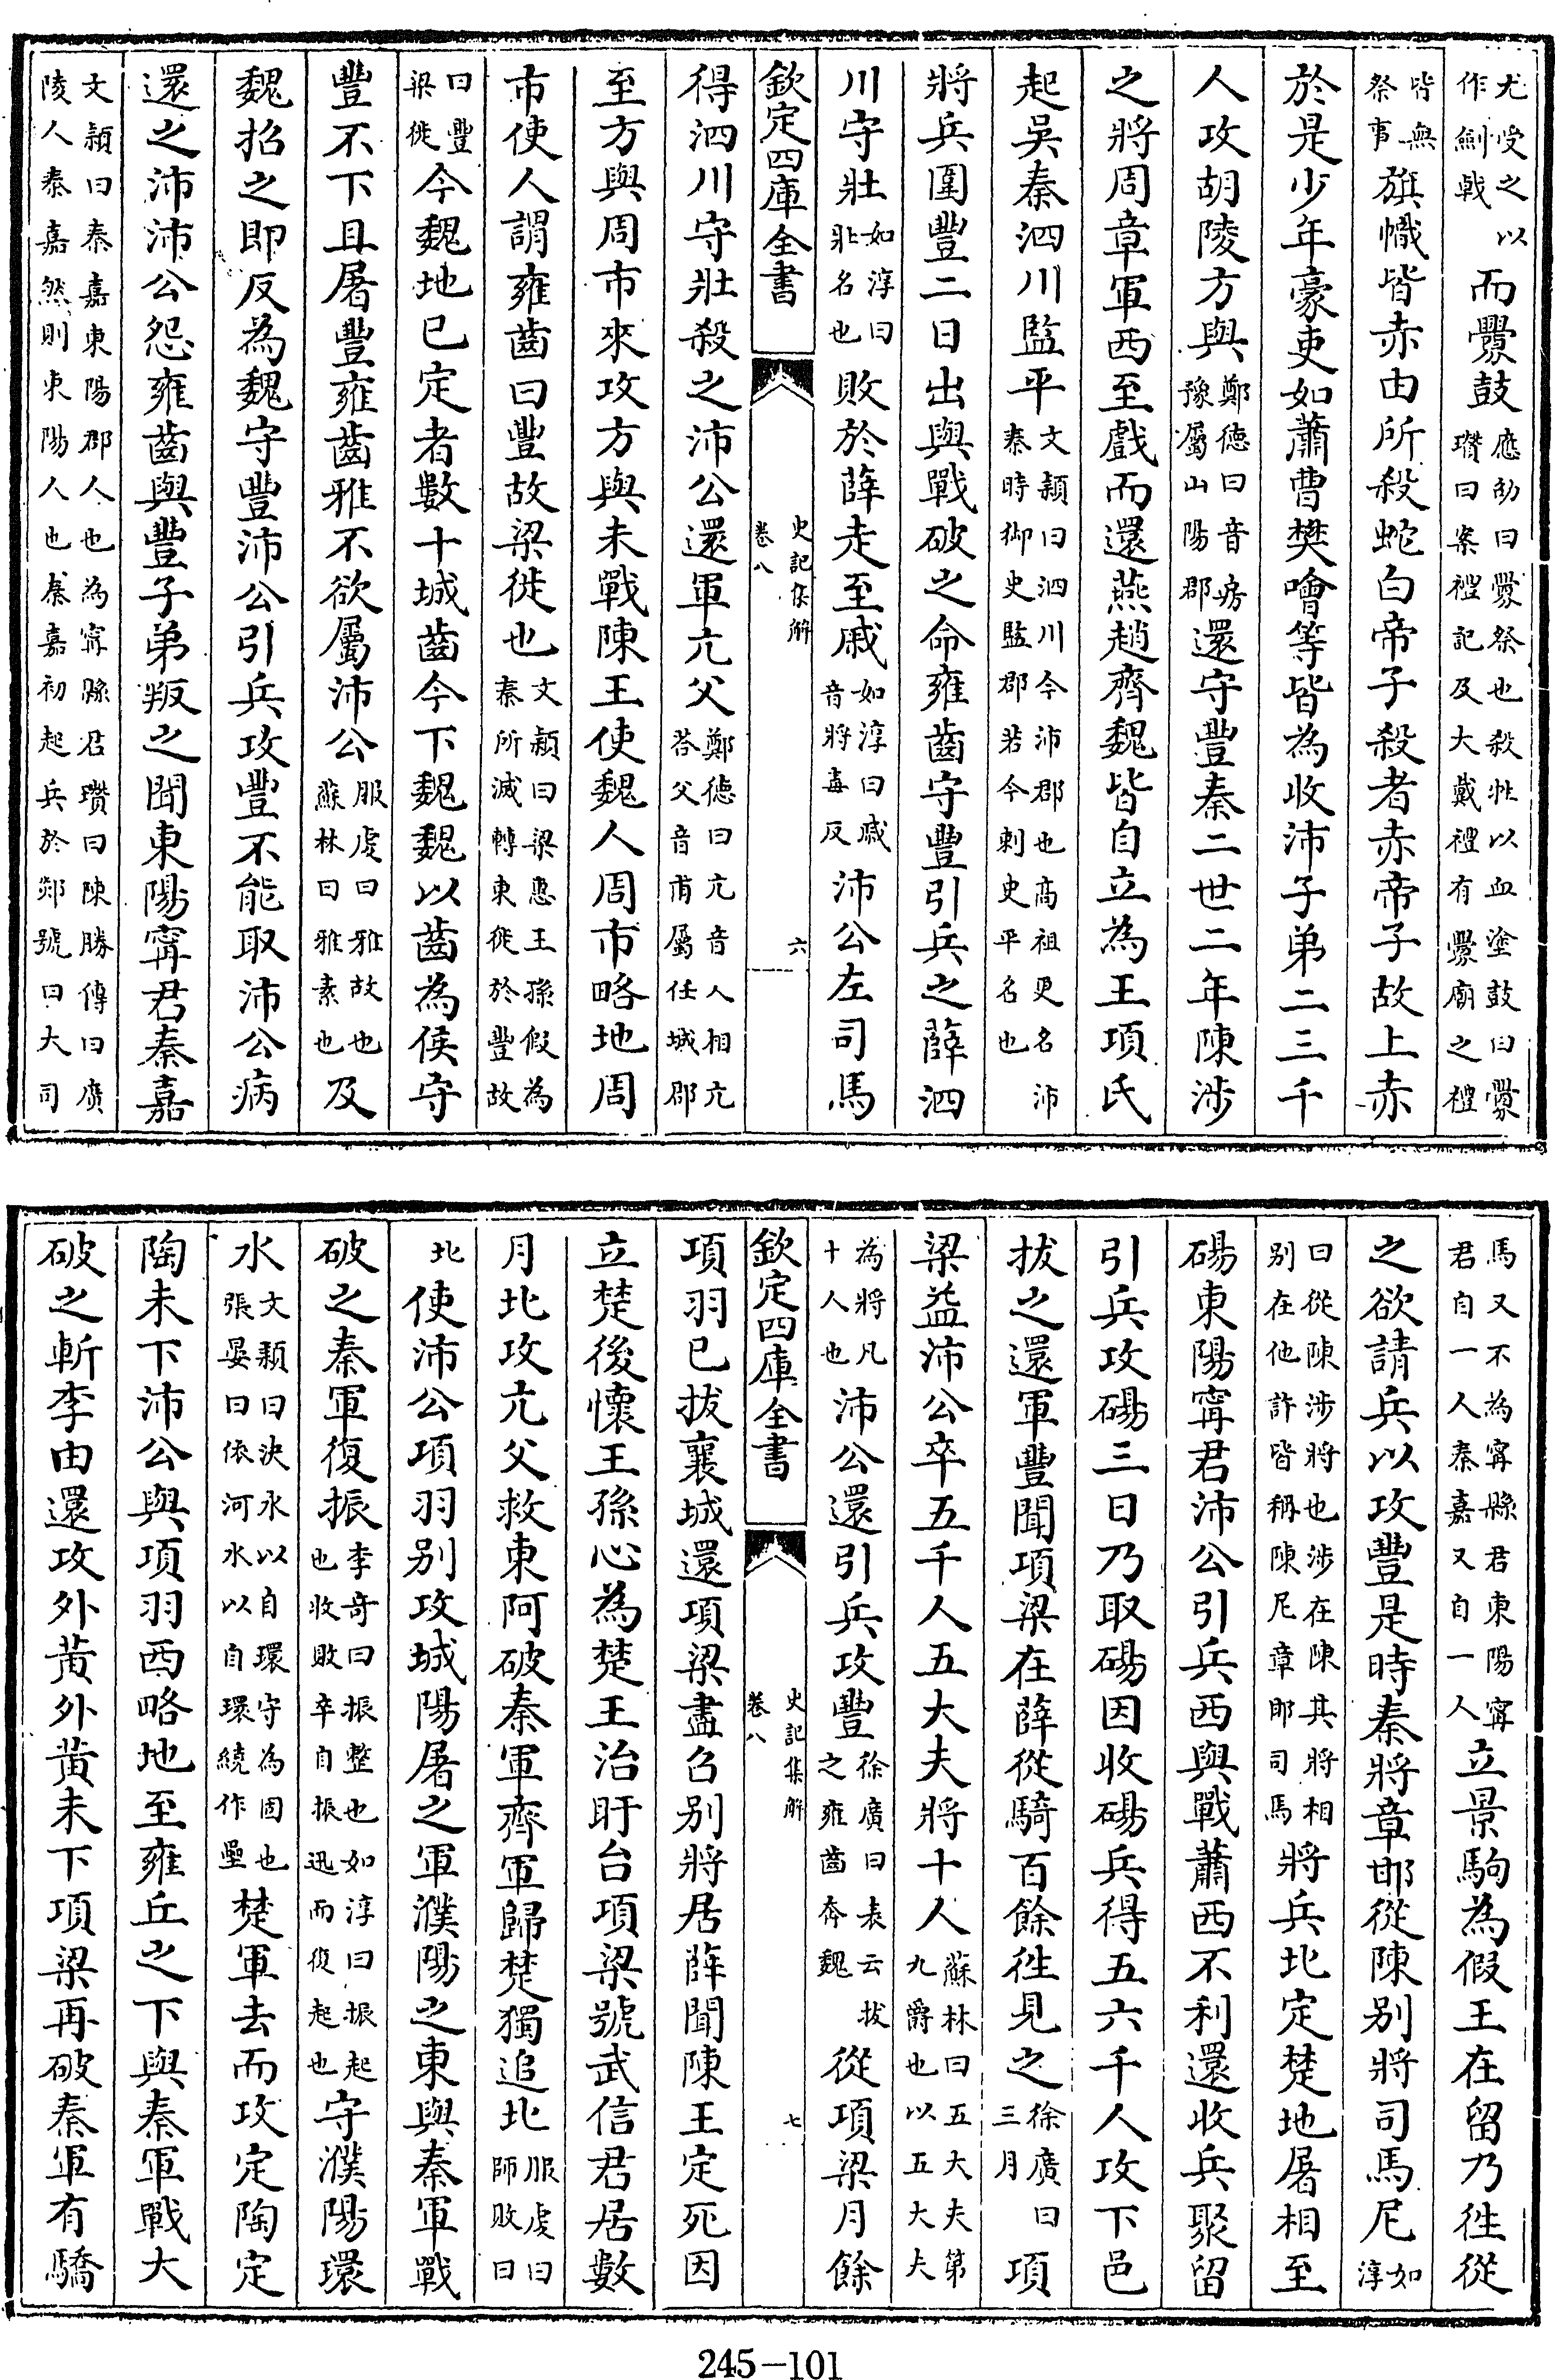 尤受之以作劍戟而釁鼓應劭曰釁祭也殺牲以血塗鼓曰釁瓚曰案禮記及大戴禮有釁廟之禮
皆無祭事旗幟皆赤由所殺蛇白帝子殺者赤帝子故上赤
於是少年豪吏如蕭曹樊噲等皆為收沛子弟二三千
人攻胡陵方與鄭德曰音房豫屬山陽郡還守豐秦二世二年陳涉
之將周章軍西至戲而還燕趙齊魏皆自立為王項氏
起吳秦泗川監平文穎曰泗川今沛郡也高祖更名沛秦時御史監郡若今刺史平名也
將兵圍豐二日出與戰破之命雍齒守豐引兵之薛泗
川守壯如淳曰壯名也敗於薛走至戚如淳曰戚音將毒反沛公左司馬
欽定四庫全書
史記集解
卷八
六
得泗川守壯殺之沛公還軍亢父鄭德曰亢音人相亢荅父音甫屬任城郡
至方與周市來攻方與未戰陳王使魏人周市略地周
市使人謂雍齒曰豐故梁徙也文穎曰梁惠王孫假為秦所滅轉東徙於豐故
曰豐梁徙今魏地已定者數十城齒今下魏魏以齒為侯守
豐不下且屠豐雍齒雅不欲屬沛公服虔曰雅故也蘇林曰雅素也及
魏招之即反為魏守豐沛公引兵攻豐不能取沛公病
還之沛沛公怨雍齒與豐子弟叛之聞東陽甯君秦嘉
文穎曰秦嘉東陽郡人也為甯縣君瓚曰陳勝傳曰廣陵人秦嘉然則東陽人也秦嘉初起兵於郯號曰大司
馬又不為甯縣君東陽甯君自一人秦嘉又自一人立景駒為假王在留乃往從
之欲請兵以攻豐是時秦將章邯從陳别將司馬尼如淳
曰從陳涉將也涉在陳其將相别在他許皆稱陳尼章邯司馬將兵北定楚地屠相至
碭東陽甯君沛公引兵西與戰蕭西不利還收兵聚留
引兵攻碭三日乃取碭因收碭兵得五六千人攻下邑
拔之還軍豐聞項梁在薛從騎百餘往見之徐廣曰三月項
梁益沛公卒五千人五大夫將十人蘇林曰五大夫第九爵也以五大夫
為將凡十人也沛公還引兵攻豐徐廣曰表云拔之雍齒奔魏從項梁月餘
欽定四庫全書
史記集解
卷八
七
項羽已拔襄城還項梁盡召别將居薛聞陳王定死因
立楚後懷王孫心為楚王治盱台項梁號武信君居數
月北攻亢父救東阿破秦軍齊軍歸楚獨追北服虔曰師敗曰
北使沛公項羽别攻城陽屠之軍濮陽之東與秦軍戰
破之秦軍復振李奇曰振整也如淳曰振起也收敗卒自振迅而復起也守濮陽環
水文穎曰決水以自環守為固也張晏曰依河水以自環繞作壘楚軍去而攻定陶定
陶未下沛公與項羽西略地至雍丘之下與秦軍戰大
破之斬李由還攻外黃外黃未下項梁再破秦軍有驕
245-101